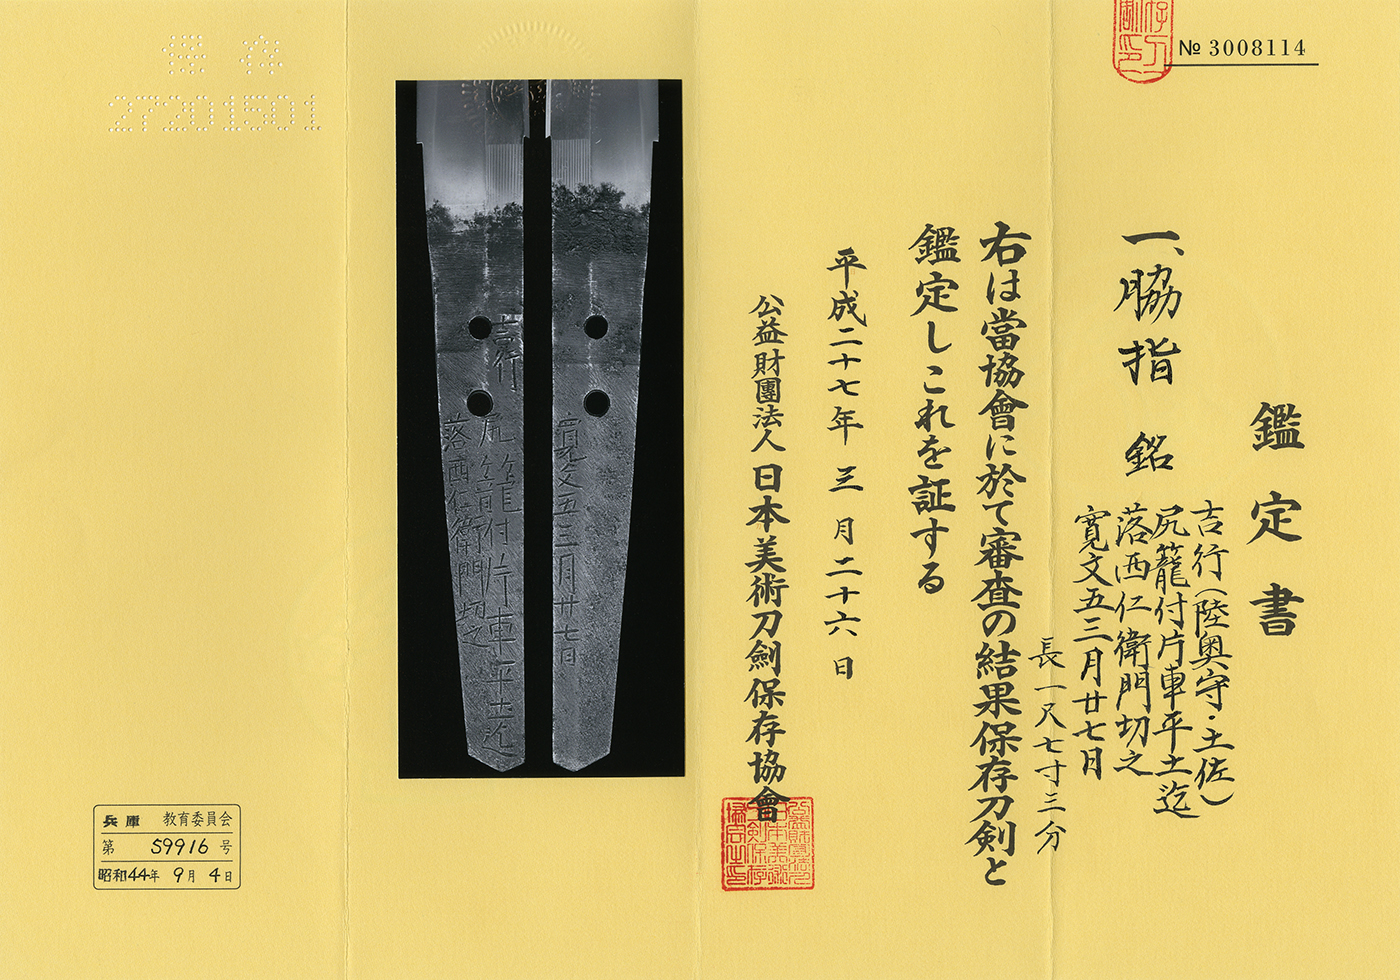 № 3008114
鑑定書
一、脇指 銘
吉行（陸奥守・土佐）
尻籠付片車平土迄
落西仁衛門切之
寛文五三月廿七日
長一尺七寸三分
右は當協會に於て審査の結果保存刀剣と
鑑定しこれを証する
平成二十七年三月二十六日
公益財團法人日本美術刀劍保存協會
吉行
尻籠付片車平土迄
落西仁衛門切之
寛文五三月廿七日
保存
27201501
兵庫 教育委員会
第 59916 号
昭和44年 9月 4日